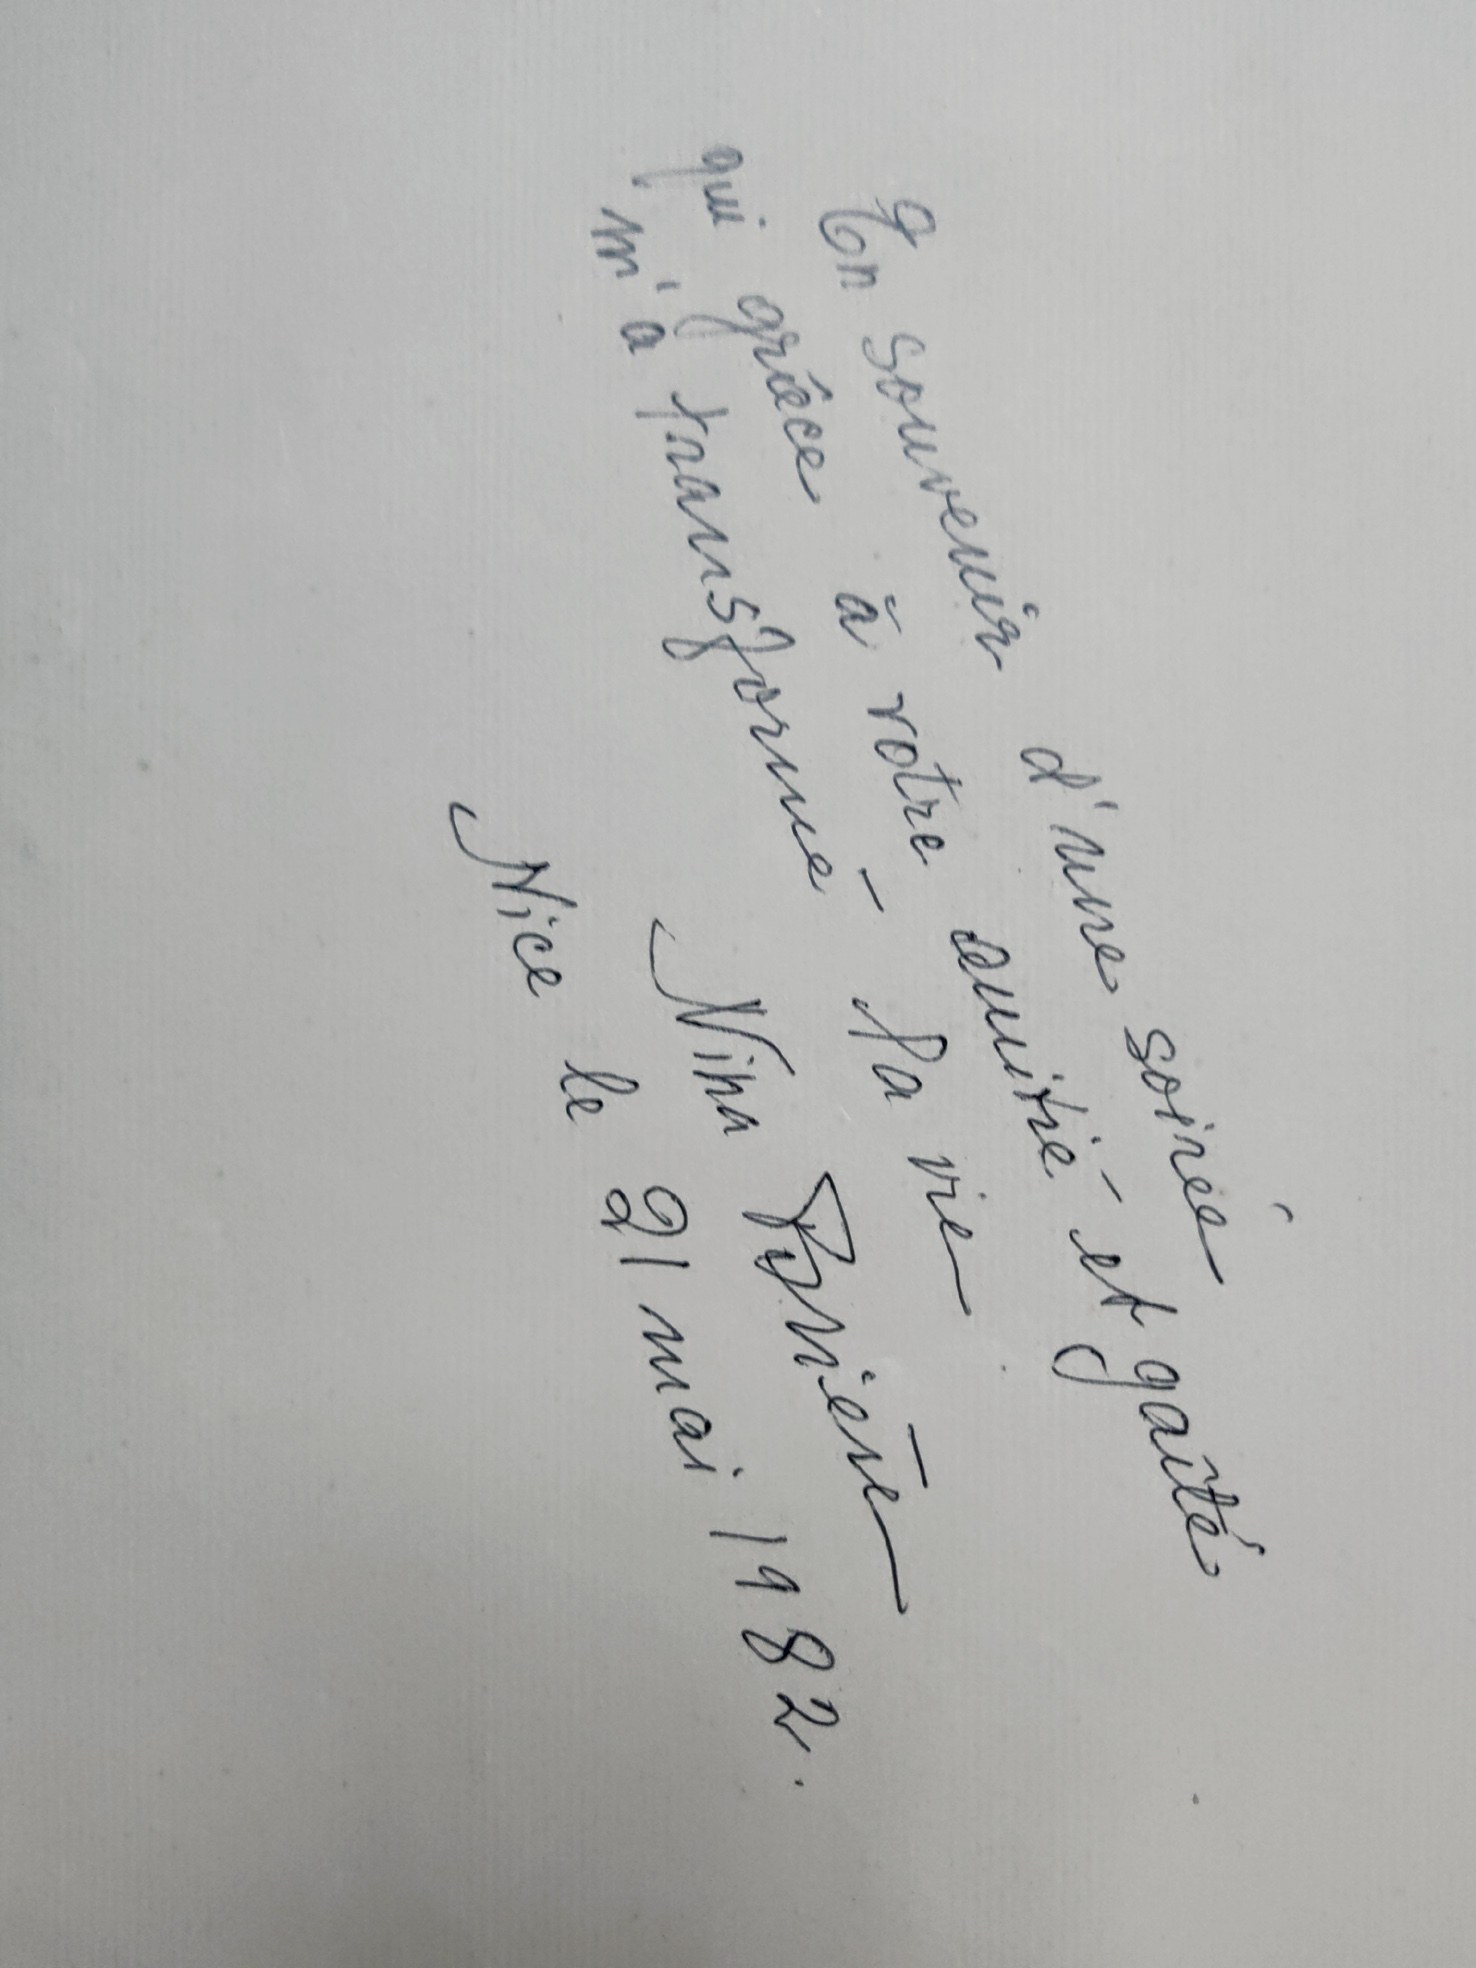 En souvenir d'une soirée
qui grâce à votre amitié et gaîté
m'a transformé la vie
Nina
Nice le 21 mai 1982.